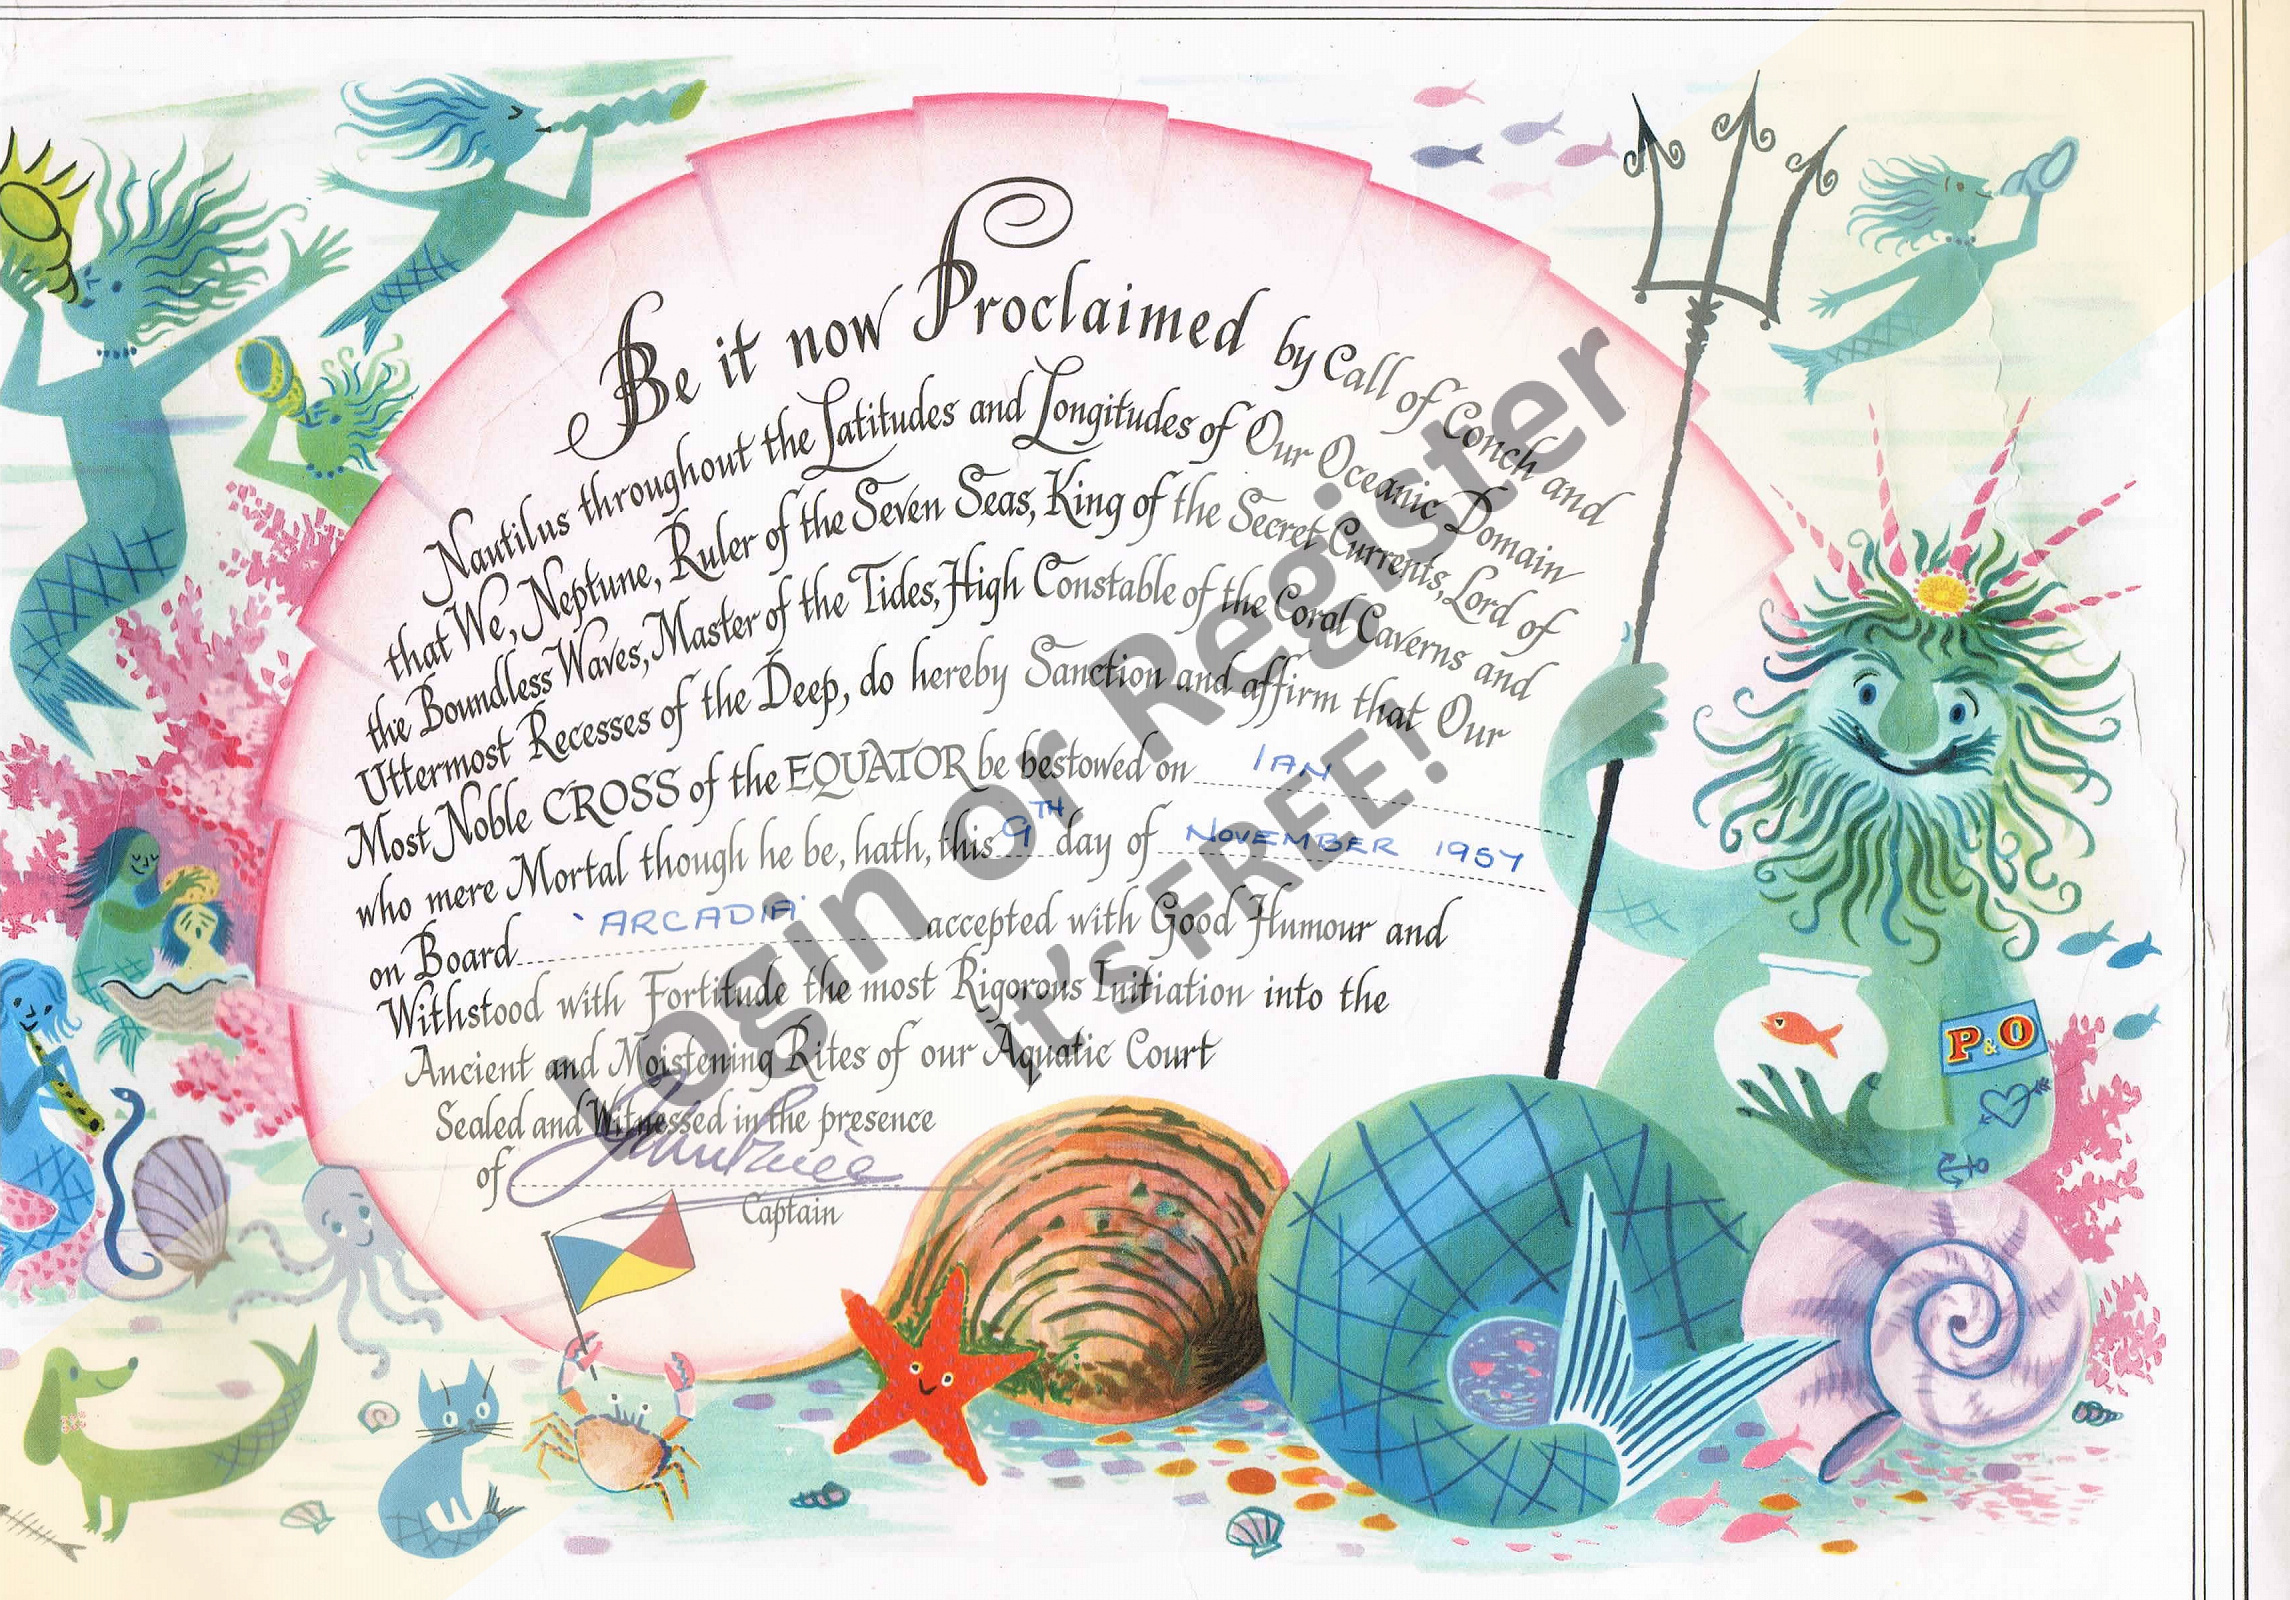 Be it now Proclaimed by Call of Conch and
Nautilus throughout the Latitudes and Longitudes of Our Oceanic Domain
that We, Neptune, Ruler of the Seven Seas, King of the Secret Currents, Lord of
the Boundless Waves, Master of the Tides, High Constable of the Coral Caverns and
Uttermost Recesses of the Deep, do hereby Sanction and affirm that Our
Most Noble CROSS of the EQUATOR be bestowed on IAN
who mere Mortal though he be, hath, this 9TH day of NOVEMBER 1957
on Board 'ARCADIA' accepted with Good Humour and
Withstood with Fortitude the most Rigorous Initiation into the
Ancient and Moistening Rites of our Aquatic Court
Sealed and Witnessed in the presence
of
Captain
P&O
Login or Register
It's FREE!